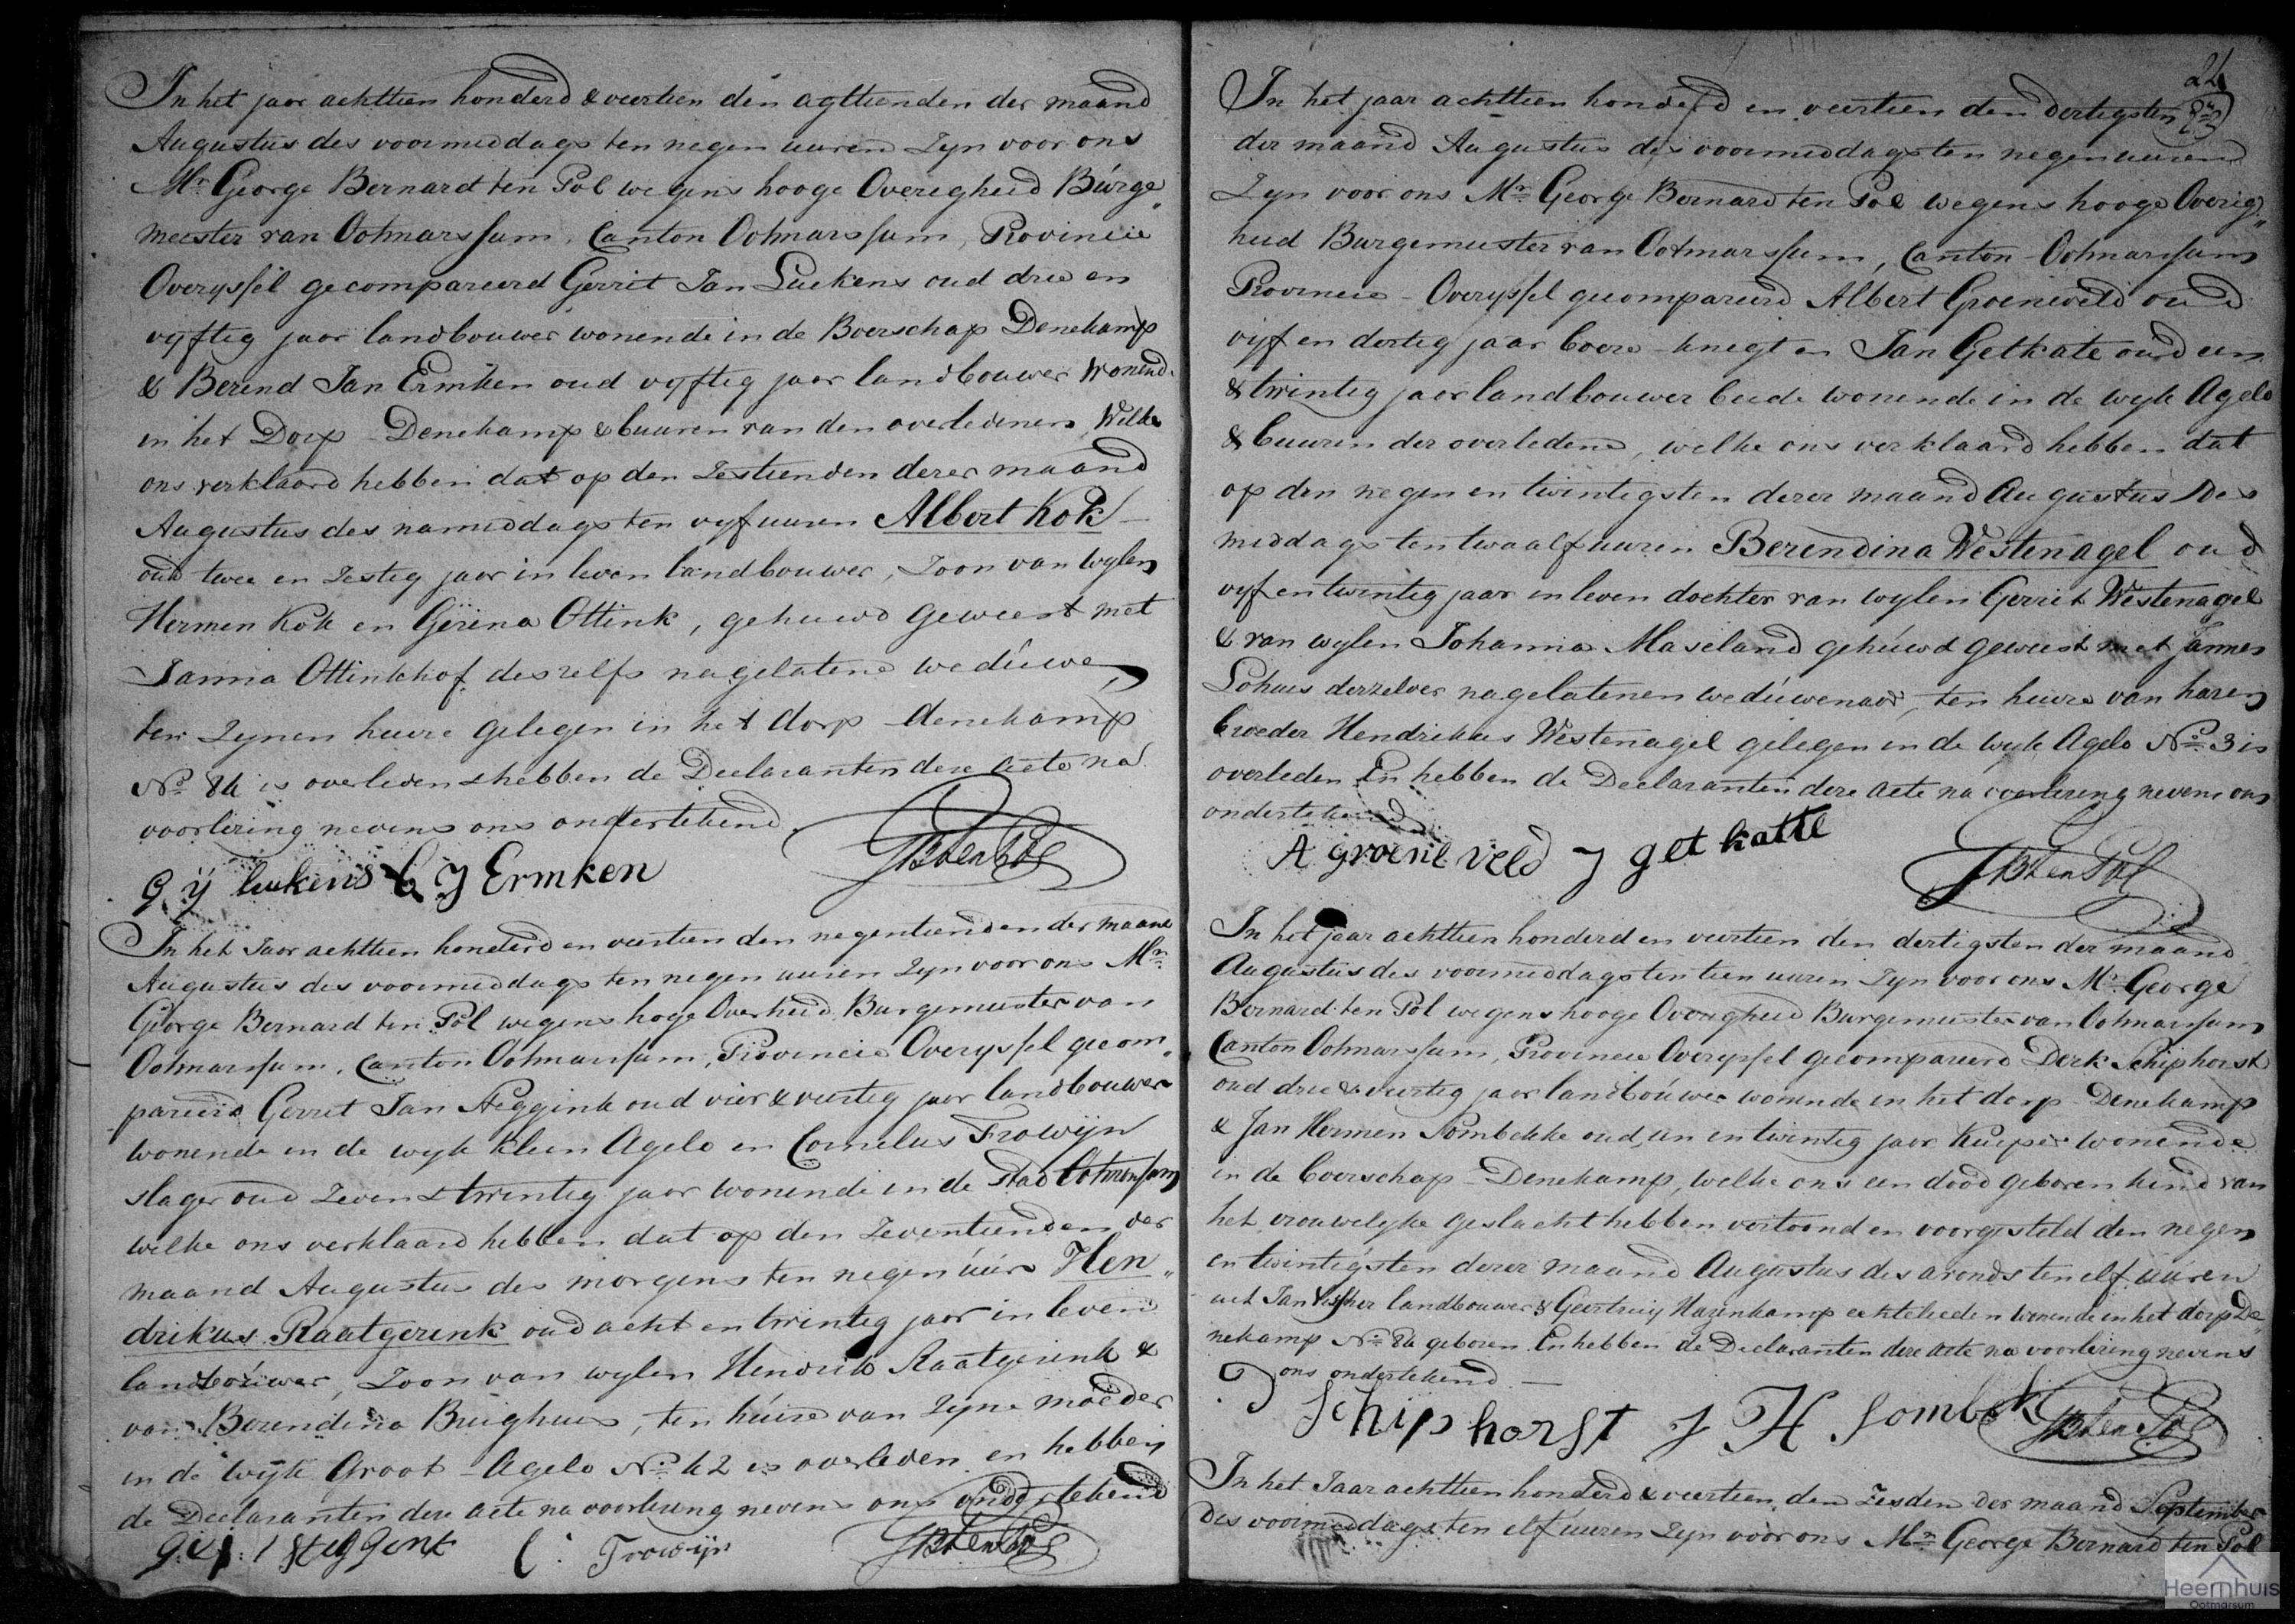 In het jaar achttien honderd & veertien den agttienden der maand
Augustus des voormiddags ten negen uuren Zyn voor ons
Mr. George Bernard ten Pol wegens hooge Overigheid Burge„
meester van Ootmarssum, Canton Ootmarssum, Provincie
Overyssel gecompareerd Gerrit Jan Luekens oud drie en
vyftig jaar landbouwer wonende in de Boerschap Denekamp
& Berend Jan Ermken oud vyftig jaar landbouwer Wonend
in het Dorp Denekamp & buuren van den overledenen Welke
ons verklaard hebben dat op den Zestienden dezer maand
Augustus des namiddags ten vyf uuren Albert Kok –
oud twee en Zestig jaar in leven landbouwer, Zoon van wylen
Hermen Kok en Gerina Ottink, gehuwd geweest met
Janna Ottinkhof deszelfs nagelatene weduwe,
ten Zynen huize gelegen in het dorp denekamp
No. 84 is overleden & hebben de Declaranten deze acte na
voorlezing nevens ons ondertekend
G ÿ lukens B J Ermken GBtenPol
In het Jaar achttien honderd en veertien den negentienden der maand
Augustus des voormiddags ten negen uuren Zyn voor ons Mr.
George Bernard ten Pol wegens hoge Overheid Burgemeester van
Ootmarssum, Canton Ootmarssum, Provincie Overyssel gecom„
pareerd Gerrit Jan Steggink oud vier & veertig jaar landbouwer
wonende in de wyk Klein Agelo en Cornelus Frowijn
slager oud Zeven & twintig jaar wonende in de Stad Ootmarssum
welke ons verklaard hebben dat op den Zeventienden der
maand Augustus des morgens ten negen uure Hen„
drikus Raatgerink oud acht en twintig jaar in leven
landbouwer, Zoon van wylen Hendrik Raatgerink &
van Berendina Bruighuis, ten huize van Zyne moeder
in de wyk Groot Agelo No. 42 is overleden en hebben
de Declaranten deze acte na voorlezing nevens ons ondertekend
steggink C. Frowijn GBtenPol
24
In het jaar achttien honderd en veertien den dertigsten
der maand Augustus des voormiddags ten negen uuren
Zyn voor ons Mr. George Bernard ten Pol wegens hooge Overig„
heid Burgemeester van Ootmarssum, Canton Ootmarssum
Provincie Overyssel gecompareerd Albert Groeneveld oud
vijf en dertig jaar boere knegt en Jan Getkate oud een
& twintig jaar landbouwer beide wonende in de wyk Agelo
& buuren der overledene, welke ons verklaard hebben dat
op den negen en twintigsten dezer maand Augustus des
middags ten twaalf uuren Berendina Westenagel oud
vyf en twintig jaar in leven dochter van wylen Gerrit Westenagel
& van wylen Johanna Maseland gehuwd geweest met Jannes
Lohuis derzelver nagelatenen weduwenaar, ten huize van haren
broeder Hendrikus Westenagel gelegen in de wyk Agelo No. 3 is
overleden En hebben de Declaranten deze acte na voorlezing nevens ons
ondertekend
A groene veld J get katte GBtenPol
In het jaar achttien honderd en veertien den dertigsten der maand
Augustus des voormiddags ten tien uuren Zyn voor ons Mr. George
Bernard ten Pol wegens hooge Overigheid Burgemeester van Ootmarssum
Canton Ootmarssum, Provincie Overyssel gecompareerd Derk Schiphorst
oud drie & veertig jaar landbouwer wonende in het dorp Denekamp
& Jan Hermen Sombekke oud een en twintig jaar Kuiper wonende
in de boerschap Denekamp, welke ons een dood geboren kind van
het vrouwelyke geslacht hebben vertoond en voorgesteld den negen
en twintigsten dezer maand Augustus des avonds ten elf uuren
uit Jan Visscher landbouwer & Geertruiy Hazenkamp echtelieden wonende in het dorp De„
nekamp No. 8a geboren En hebben de Declaranten deze acte na voorlezing nevens
ons ondertekend –
D Schiphorst J H Sombek GBtenPol
In het Jaar achttien honderd & veertien den Zesden der maand September
des voormiddags ten elf uuren Zyn voor ons Mr. George Bernard ten Pol
Heemhuis
Ootmarsum